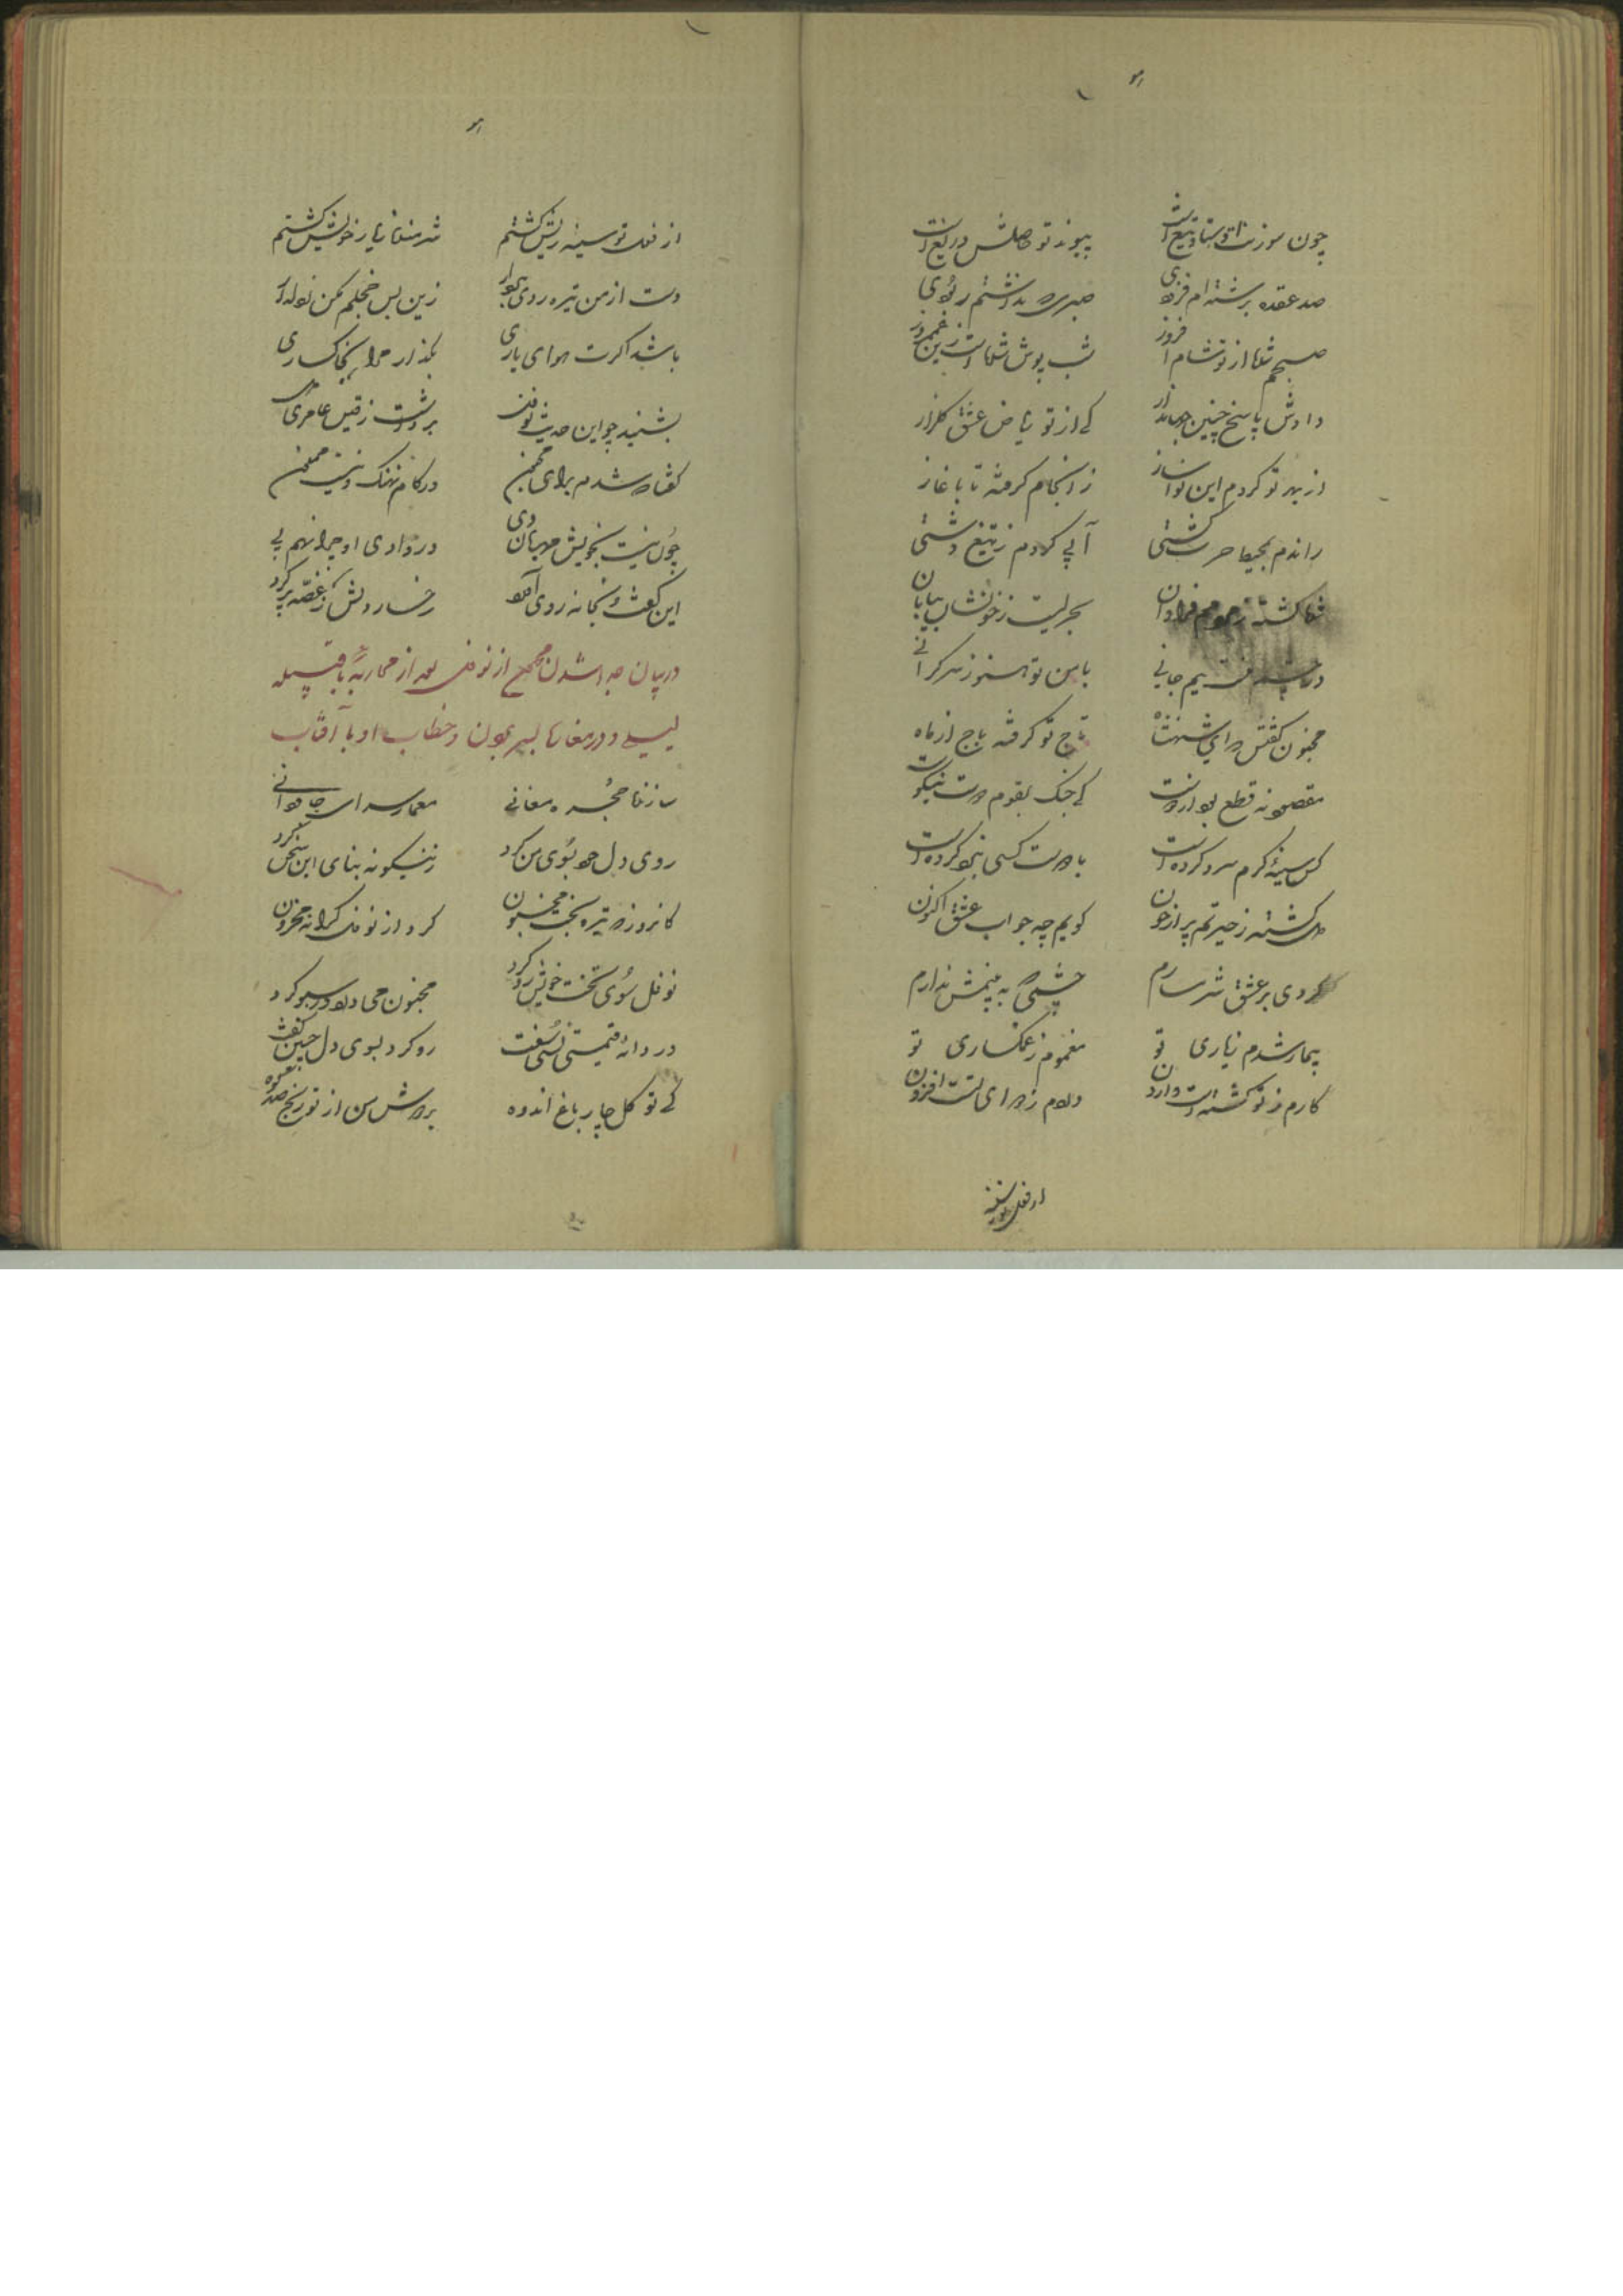 هو
چون سوزنت
پیوند تو حاصلش دریغ است
صد عقده برشته‌ام فزودی
صبری که نداشتم ربودی
صبحم شها از تو شام افروز
شب پوش شها است زین غم روز
دادش پاسخ چنین جهاندار
کی از تو ریاض عشق گلزار
از بهر تو کردم این نوا ساز
ز انجام گرفته تا باغاز
راندم بمحیط حرب کشتی
آبی کردم ز تیغ
شها کشته ز هر دو هم فراوان
بحریست ز خونشان بیابان
یم جانی
با من تو هنوز سر گرانی
مجنون گفتش که ای شهنشاه
تاج تو گرفته باج از ماه
مقصود نه قطع بود از دوست
کی جنگ بقوم دوست نیکوست
کس سینه گرم سرد کرده است
با دوست کسی نبرد کرده است
دل گشته ز حیرتم پر از خون
گویم چه جواب عشق اکنون
کردی بر عشق شرمسارم
چشمی که به بینمش ندارم
بیمار شدم ز یاری تو
مغموم ز غمگساری تو
کارم ز تو گشته است وارون
دردم ز دوای تست افزون
از فعل تو سینه
هو
از فعل تو سینه ریش گشتم
شرمنده ز یار خویش گشتم
دست از من تیره روی بردار
زین بس خجلم مکن
باشد اگرت هوای یاری
بگذار مرا بخاکساری
بشنید چو این حدیث نوفل
برداشت ز قیس عامری دل
گفتا که شدم برای مجنون
در کام نهنگ و نیست ممنون
چون نیست بخویش مهربان وی
در وادی او چرا نهم پی
این گفت و بخانه روی آورد
رخسار دلش ز غصه پر گرد
در بیان جدا شدن مجنون از نوفل بعد از محاربه با قبیله
لیلی و در مغاک بسر بردن و خطاب او با آفتاب
سازنده حجره معانی
معمار سرای جاودانی
روی دل خود بسوی من کرد
زینگونه بنای این سخن کرد
کانروز که تیره بخت مجنون
کرد از نوفل کرانه محزون
نوفل سوی تخت خویش رو کرد
مجنون می درد در سبو کرد
دردانه قیمتی نمی سفت
رو کرد بسوی دل چنین گفت
کی تو گل چار باغ اندوه
بر دوش من از تو رنج صد کوه